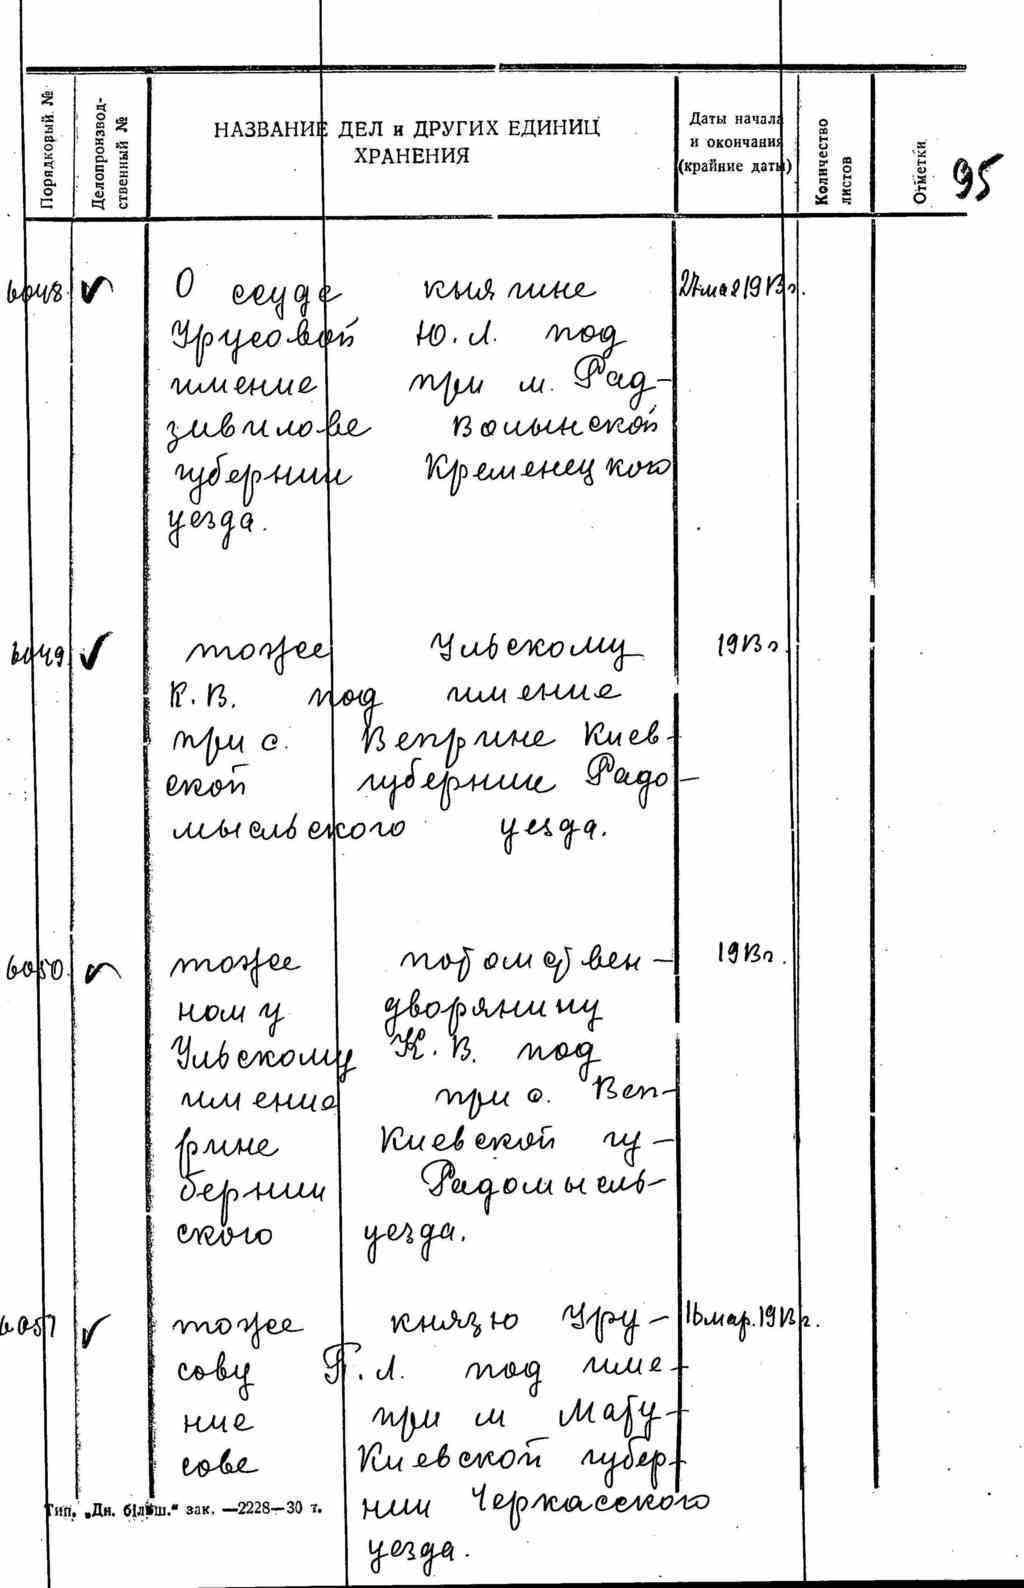 Порядковый №
Делопроизвод-
ственный №
НАЗВАНИЕ ДЕЛ и ДРУГИХ ЕДИНИЦ
ХРАНЕНИЯ
Даты начала
и окончания
(крайние даты)
Количество
листов
Отметки
95
6048. О ссуде княгине 27 мая 1913 г.
Урусовой Ю. Л. под
имение при м. Рад-
зивилове Волынской
губернии Кременецкого
уезда.
6049 тоже Ульскому 1913 г.
К. В. под имение
при с. Веприне Киев-
ской губернии Радо-
мысльского уезда.
6050. тоже потомствен- 1913 г.
ному дворянину
Ульскому К. В. под
имение при с. Веп-
рине Киевской гу-
бернии Радомысль-
ского уезда.
6051 тоже князю Уру- 16 мар. 1913 г.
сову П. Л. под име-
ние при м Мату-
сове Киевской губер-
нии Черкасского
уезда.
Тип. „Дн. більш.“ зак. —2228—30 т.